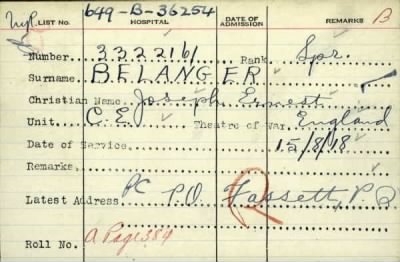 649-B-36254
LIST NO. HOSPITAL DATE OF ADMISSION REMARKS B
Number 3322161 Rank Spr.
Surname BELANGER
Christian Name Joseph Ernest
Unit C E Theatre of War England
Date of Service 15/8/18
Remarks
Latest Address RC P.O. Fassett, P.Q
Roll No. A Page 384